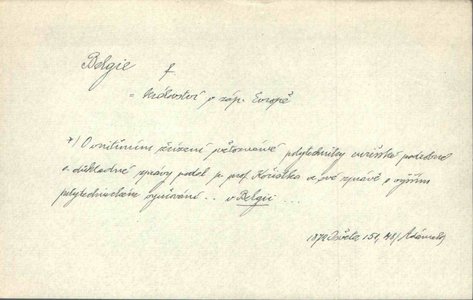 Belgie f.
= království v záp. Evropě
*/ O vnitřním zřízení polytechniky podobné
a důkladné zprávy podal p. prof. Kořistka ve své zprávě o vyšším
polytechnickém vyučování .. v Belgii ...
1872 Osvěta 151, Adámek